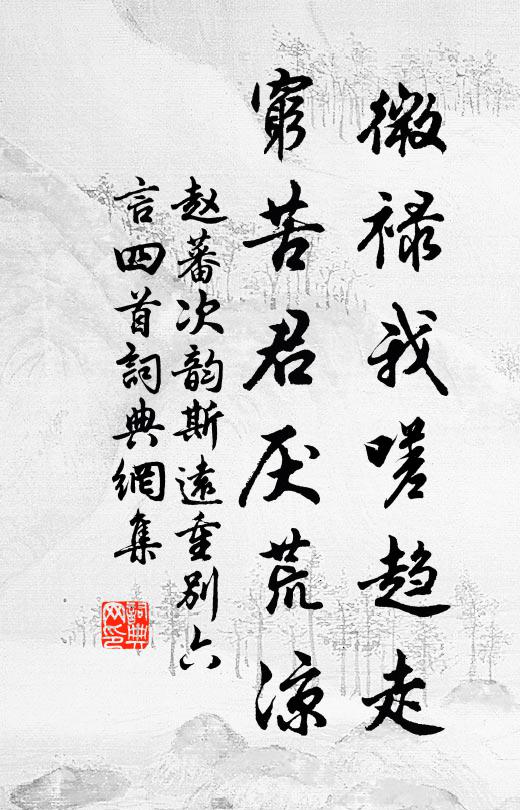 微禄我嗟趋走
窮苦君厌荒凉
赵蕃次韵斯遠重别六
言四首詞典網集
詞典
网印